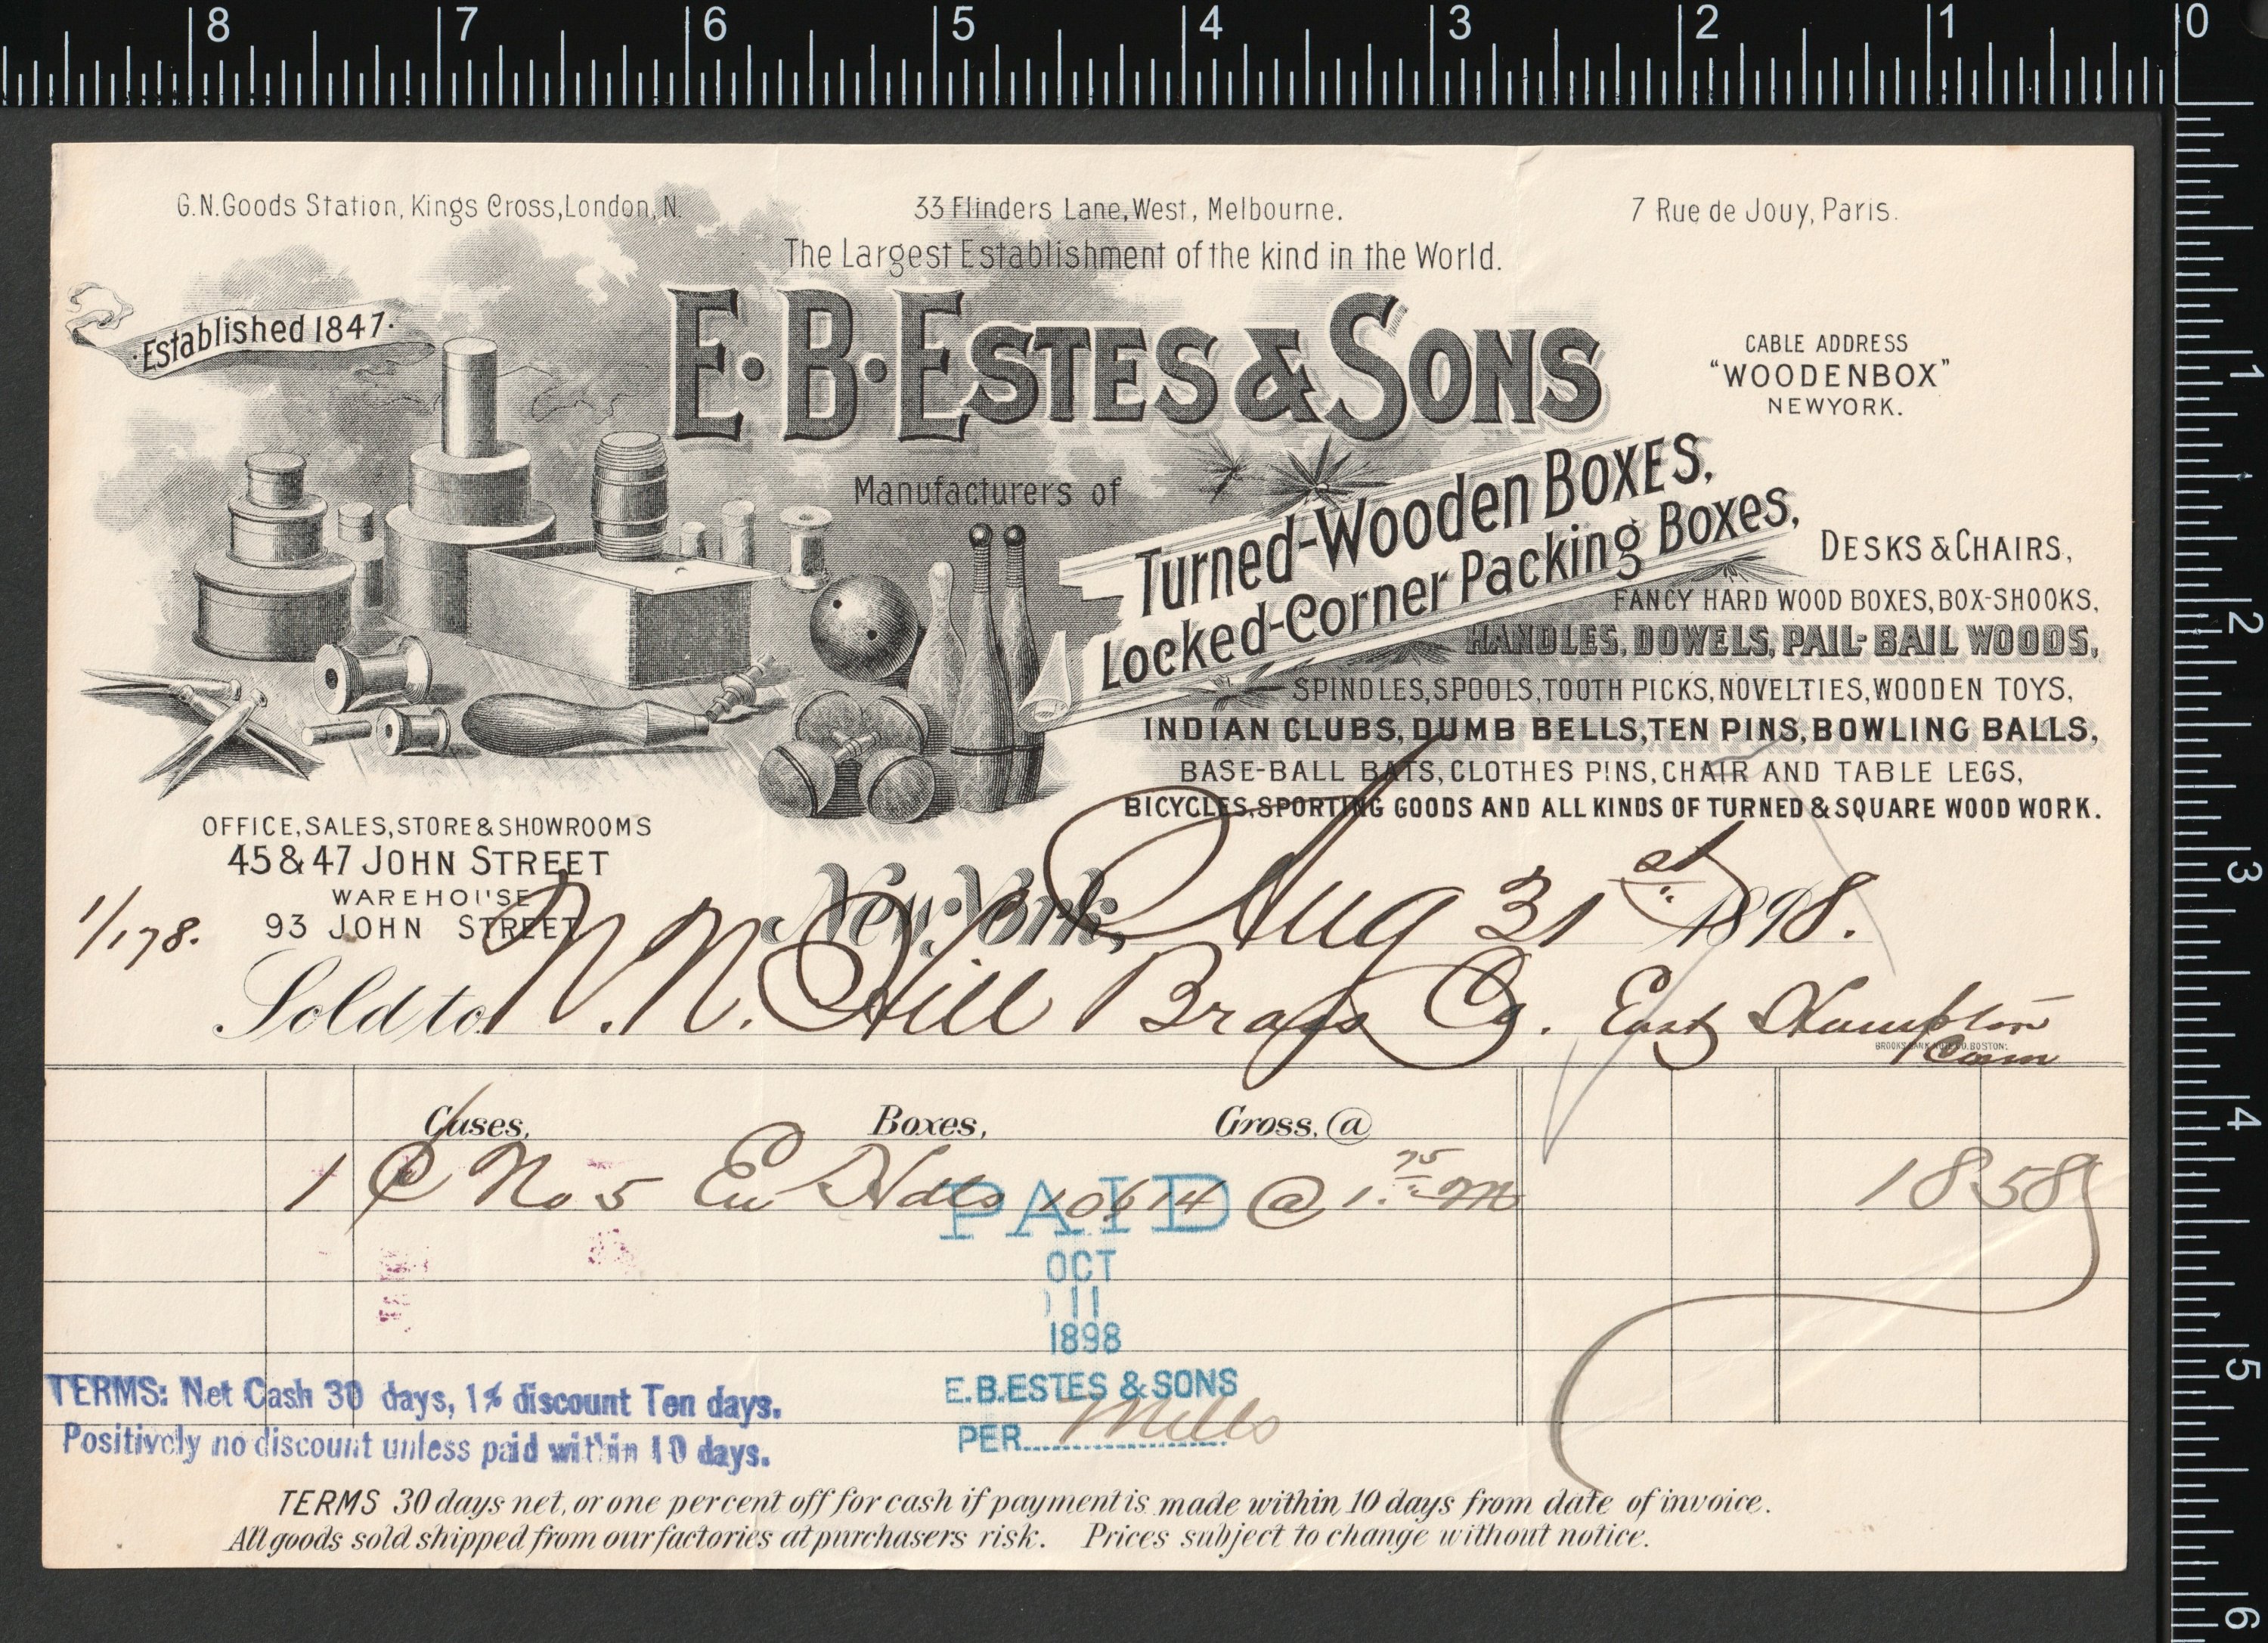 8 7 6 5 4 3 2 1 0
G.N. Goods Station, Kings Cross, London, N.
33 Flinders Lane, West, Melbourne.
7 Rue de Jouy, Paris.
The Largest Establishment of the kind in the World.
Established 1847.
E. B. ESTES & SONS
CABLE ADDRESS
"WOODENBOX"
NEW YORK.
Manufacturers of
Turned-Wooden Boxes,
Locked-Corner Packing Boxes,
DESKS & CHAIRS,
FANCY HARD WOOD BOXES, BOX-SHOOKS,
HANDLES, DOWELS, PAIL-BAIL WOODS,
SPINDLES, SPOOLS, TOOTH PICKS, NOVELTIES, WOODEN TOYS,
INDIAN CLUBS, DUMB BELLS, TEN PINS, BOWLING BALLS,
BASE-BALL BATS, CLOTHES PINS, CHAIR AND TABLE LEGS,
BICYCLES, SPORTING GOODS AND ALL KINDS OF TURNED & SQUARE WOOD WORK.
OFFICE, SALES, STORE & SHOWROOMS
45 & 47 JOHN STREET
WAREHOUSE
93 JOHN STREET
1/178.
New York, Aug 31st 1898.
Sold to N. N. Hill Brass Co. East Hampton
Conn
BROOKS BANK NOTE CO. BOSTON.
Cases, Boxes, Gross, @
1 C No 5 Hdls 10614 @ 1.75 M 18 58
PAID
OCT
11
1898
E. B. ESTES & SONS
PER Mills
TERMS: Net Cash 30 days, 1% discount Ten days.
Positively no discount unless paid within 10 days.
TERMS 30 days net, or one per cent off for cash if payment is made within 10 days from date of invoice.
All goods sold shipped from our factories at purchasers risk. Prices subject to change without notice.
1
2
3
4
5
6